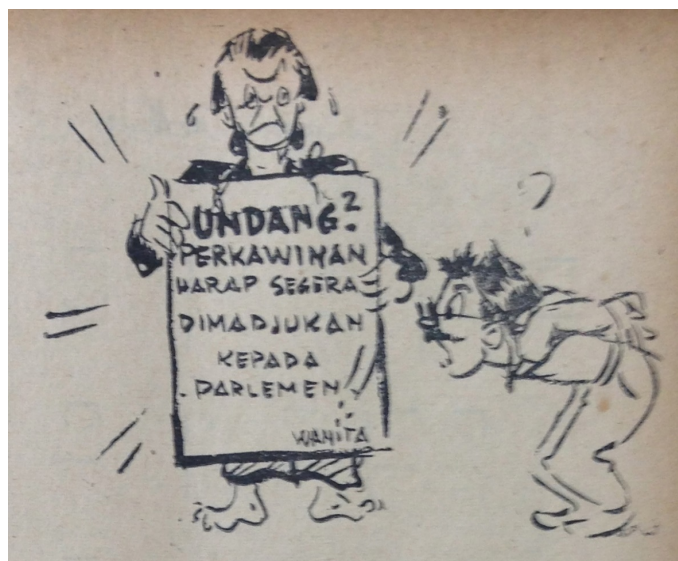 UNDANG2
PERKAWINAN
HARAP SEGERA
DIMADJUKAN
KEPADA
PARLEMEN!!
WANITA